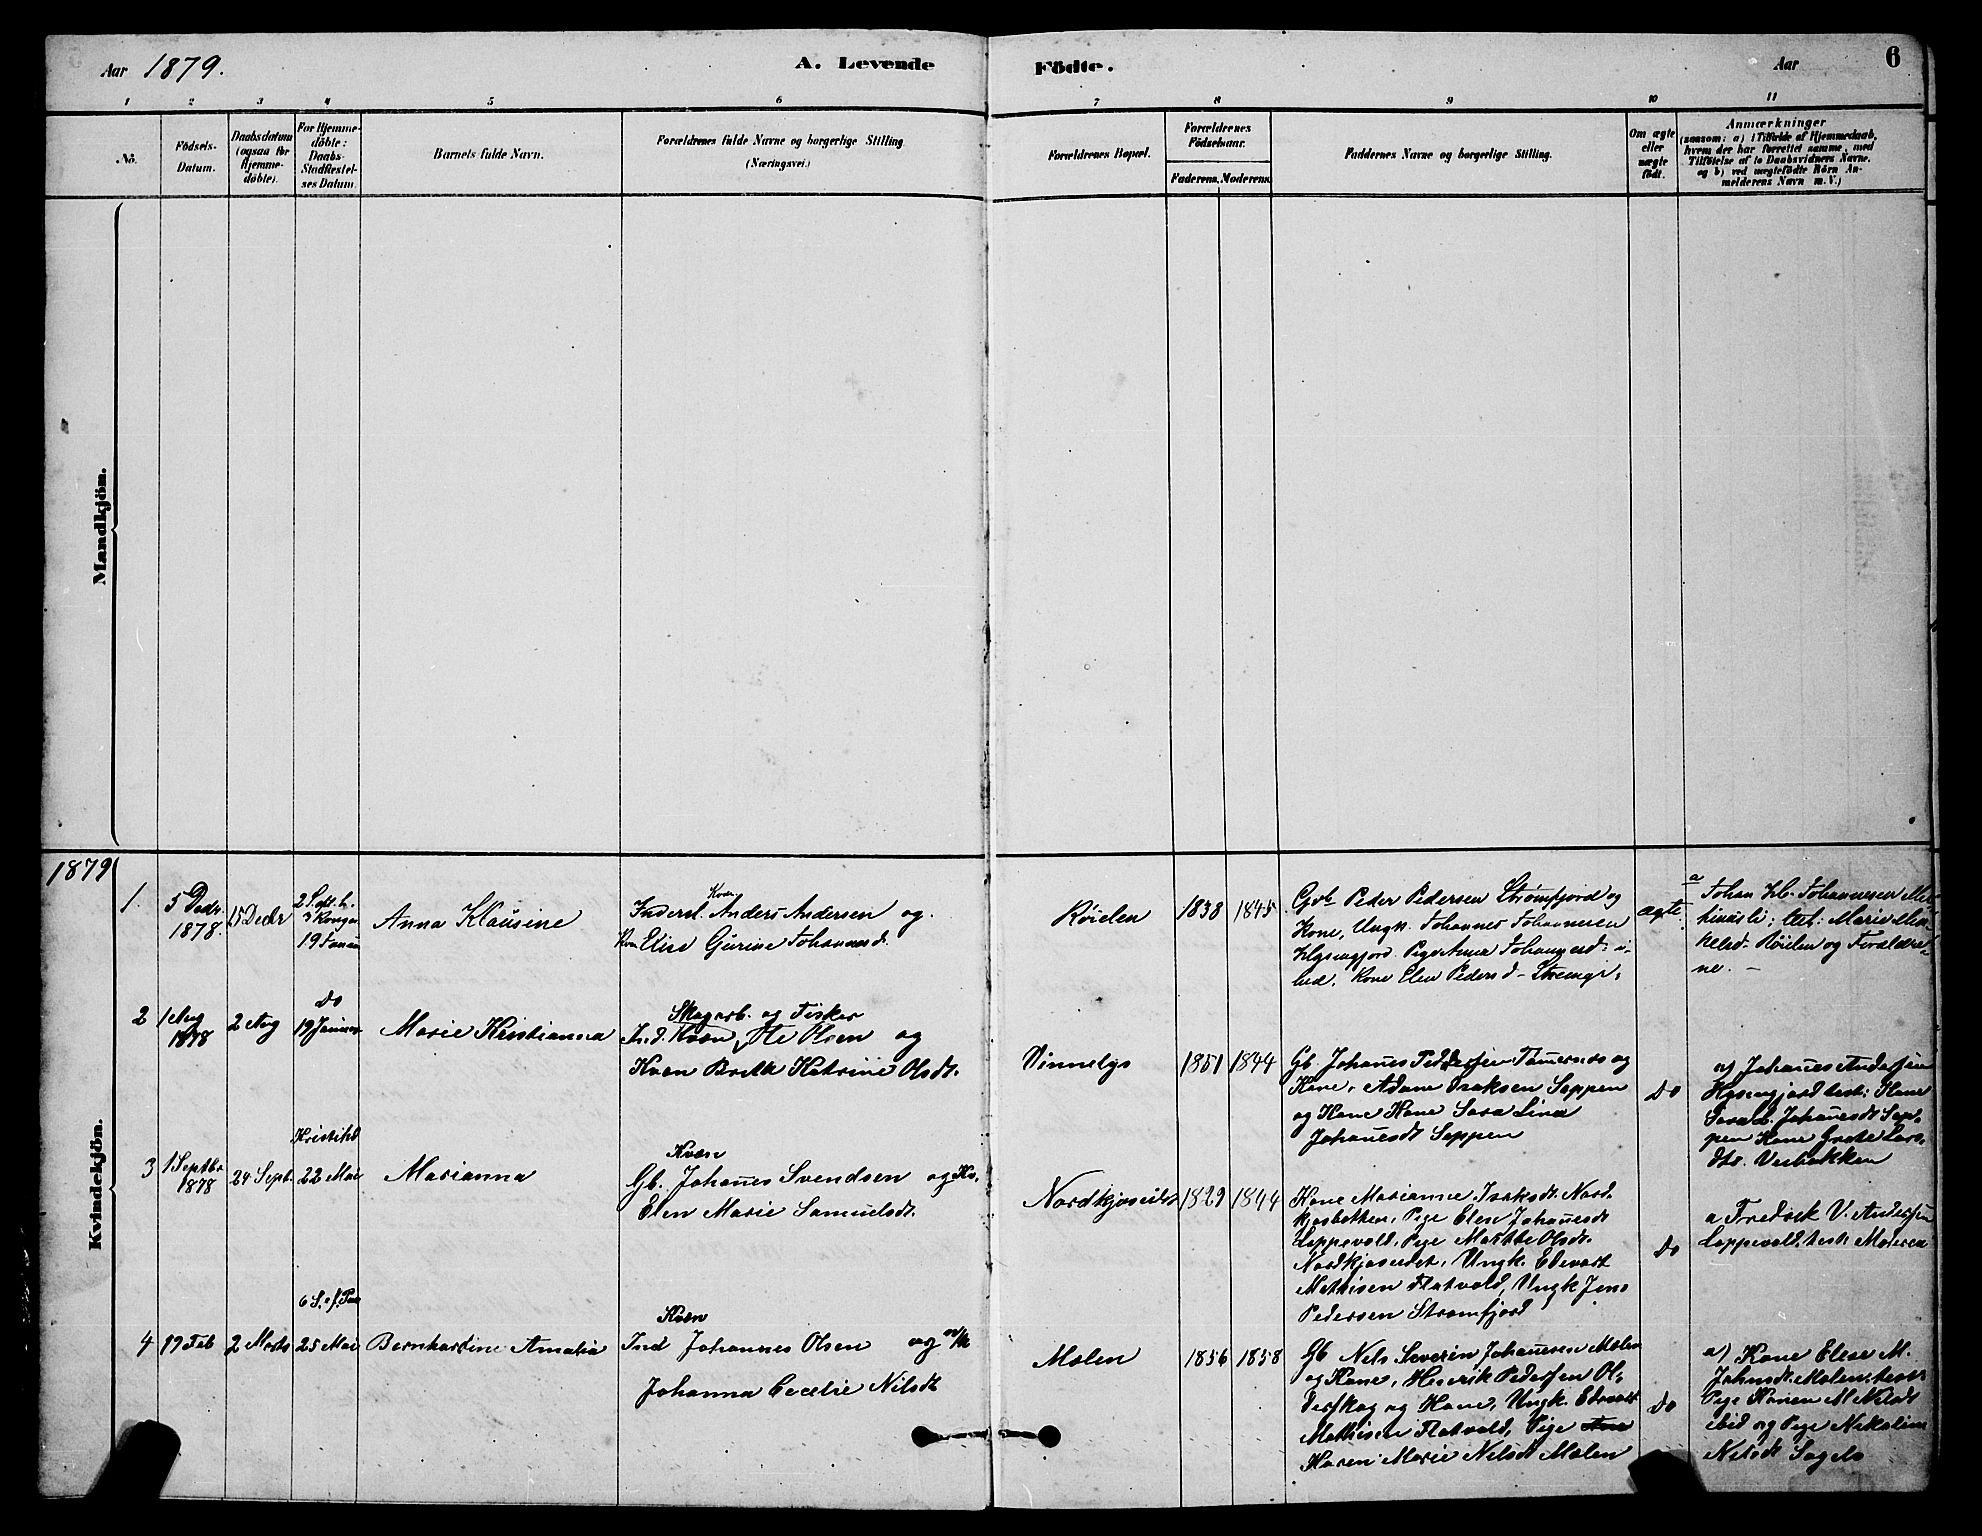 Aar 1879.
A. Levende Födte.
Aar
6
1 2 3 4 5 6 7 8 9 10 11
No.
Födsels-
Datum.
Daabsdatum
(ogsaa for
Hjemme-
döbte).
For Hjemme-
döbte:
Daabs-
Stadfæstel-
ses Datum.
Barnets fulde Navn.
Forældrenes fulde Navne og borgerlige Stilling
(Næringsvei.)
Forældrenes Bopæl.
Forældrenes
Födselsaar.
Faderens. Moderens.
Faddernes Navne og borgerlige Stilling.
Om ægte
eller
uægte
födt.
Anmærkninger
(saasom: a) i Tilfælde af Hjemmedaab,
hvem der har forrettet samme, med
Tilföielse af to Daabsvidners Navne.
og b) ved uægtefödte Börn An-
melderens Navn m. V.)
Mandkjön.
Kvindekjön.
1879
1.
5 Decbr
1878.
15 Decbr
19 Januar
Anna Klausine
Kvæn
Inderst. Anders Andersen og
Elise Gurine Johannesd.
Röielen
1838
1845
Gbr Peder Pedersen Strömfjord og
Kone, Ungk. Johannes Johannesen
Pige Anna Johannesd.
Kone Elen Pedersd
ægte.
a
Johan Johannesen
Röielen og Forældre-
ne. –
2
1 Aug
1878
2 Aug
Do
19 Januar
Marie Kristianna
Skogarb. og Fisker
Ind. Kvæn, Ole Olsen og
Kvæn Brith Katrine Olsdt.
Vinnelys
1851
1844
Gb. Johanes Peddersen og
Kone, Adam Isaksen Seppen
og Kone Kone Sara Lina
Johanesdt Seppen
Do
a) Johanes Andersen
test: Kone
Sara L. Johanesdt Sep-
pen Kone Grete Lars-
dtr.
3
1 Septbr
1878
24 Septb.
22 Mai
Marianna
Kvæn
Gb. Johanes Svendsen og Kv.
Elen Marie Samuelsdt.
Nordkjoseidet
1829
1844
Kone Marianne Isaksdt. Nord-
kjosbotten, Pige Elen Johanesdt
Lappevold, Pige Marthe Olsdt.
Nordkjoseidet, Ungk. Edevart
Mathisen Flatvold, Ungk Jens
Pedersen Stromfjord
Do
a Fredrik V. Andersen
Lappevold, test: Moderen
4
19 Feb
2 Marts
25 Mai
Bernhardine Amalia
Kvæn
Ind Johannes Olsen og
Johanna Cecelie Nilsdt
Molen
1856
1858
Gb Nels Severin Johanesen Molen
og Kone, Henrik Pedersen Ol-
derskog og Kone, Ungk. Edevart
Mathisen Flatvold, Pige
Karen Marie Nilsdt Molen
Do
a) Kone Elese M.
Johnsdt. Molen, test:
Pige Karen M Nilsdt
ibid og Pige Nikoline
Nilsdt